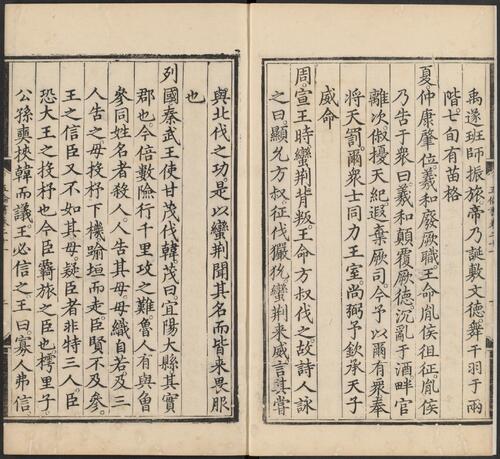 禹遂班師振旅帝乃誕敷文德舞干羽于兩
階七旬有苗格
夏仲康肇位羲和廢厥職王命胤侯徂征胤侯
乃告于衆曰羲和顛覆厥德沉亂于酒畔官
離次俶擾天紀遐棄厥司今予以爾有衆奉
將天罰爾衆士同力王室尚弼予欽承天子
威命
周宣王時蠻荆背叛王命方叔伐之故詩人詠
之曰顯允方叔征伐玁狁蠻荆来威言其嘗
與北伐之功是以蠻荆聞其名而皆来畏服
也
列國秦武王使甘茂伐韓茂曰宜陽大縣其實
郡也今倍數險行千里攻之難魯人有與曾
參同姓名者殺人人告其母母織自若及三
人告之母投杼下機踰垣而走臣賢不及參
王之信臣又不如其母疑臣者非特三人臣
恐大王之投杼也今臣羇旅之臣也樗里子
公孫奭挾韓而議王必信之王曰寡人弗信